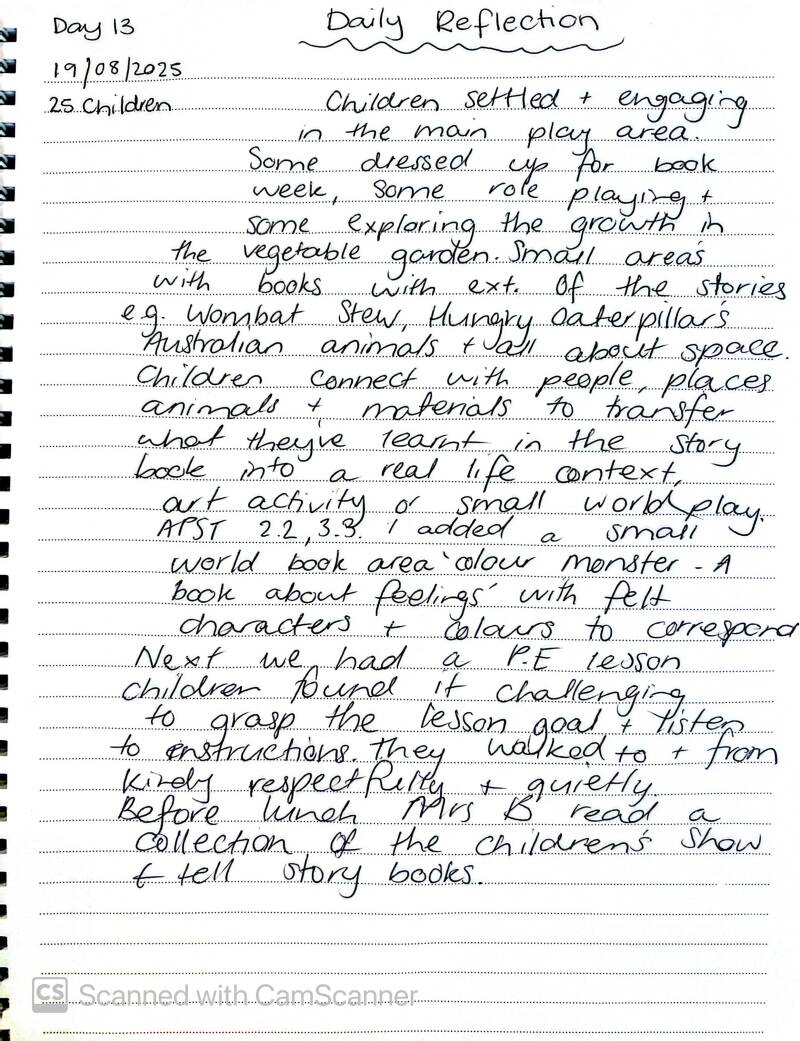 Day 13
Daily Reflection
19/08/2025
25 Children
Children settled + engaging
in the main play area.
Some dressed up for book
week, some role playing +
some exploring the growth in
the vegetable garden. Small area's
with books with ext. Of the stories
e.g. Wombat Stew, Hungry Caterpillar's
Australian animals + all about space.
Children connect with people, places
animals + materials to transfer
what they've learnt in the story
book into a real life context,
art activity or small world play.
APST 2.2, 3.3. I added a small
world book area 'colour monster - A
book about feelings' with felt
characters + colours to correspond
Next we had a P.E lesson
children found it challenging
to grasp the lesson goal + listen
to instructions. They walked to + from
kindy respectfully + quietly.
Before lunch Mrs B read a
collection of the children's show
+ tell story books.
CS Scanned with CamScanner